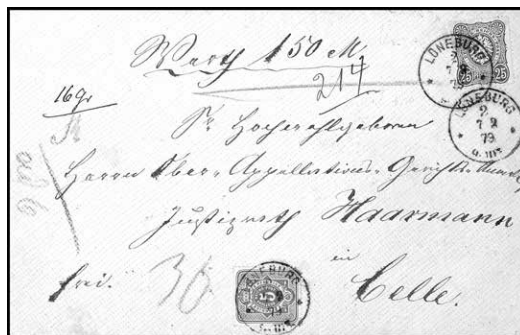 Werth 150 M.
214
16 gr
Sr. Hochwohlgeboren
Herrn Ober-Appellations-Gerichts-Anwalt
Justizrath Haarmann
in
Celle.
frei.
30
LÜNEBURG
7 2
79
25 25
LÜNEBURG
2
7 2
79
5